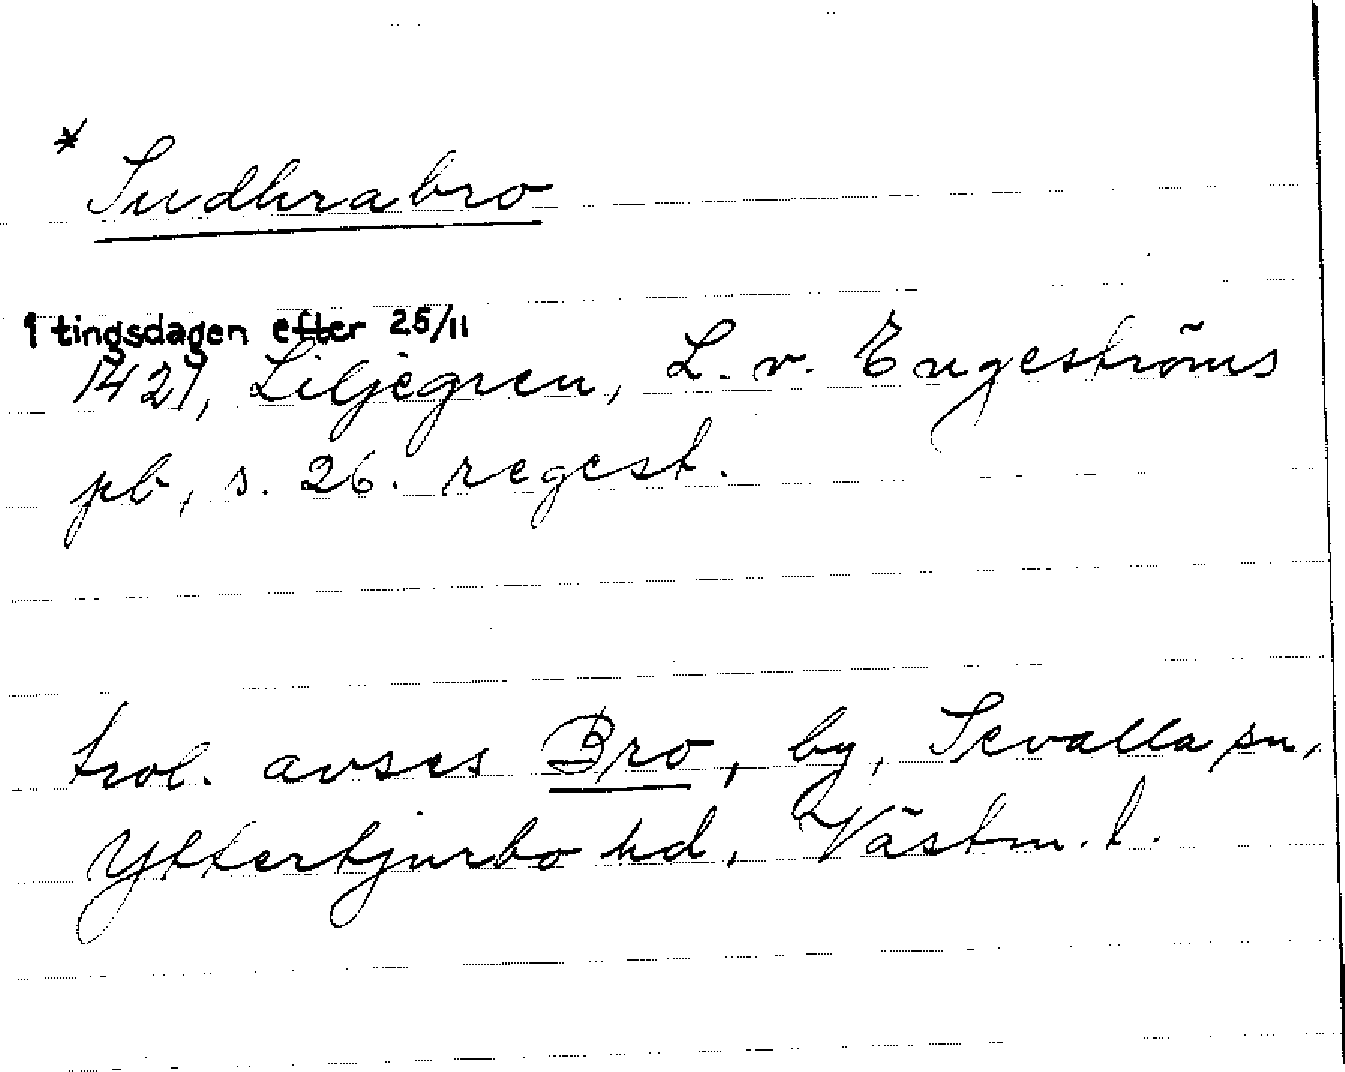 * Sudhrabro
1 tingsdagen efter 25/11
1421, Liljegren, L. v. Engeströms
pb, s. 26. regest.
trol. avses Bro, by, Sevalla sn,
Yttertjurbo hd, Västm. l.